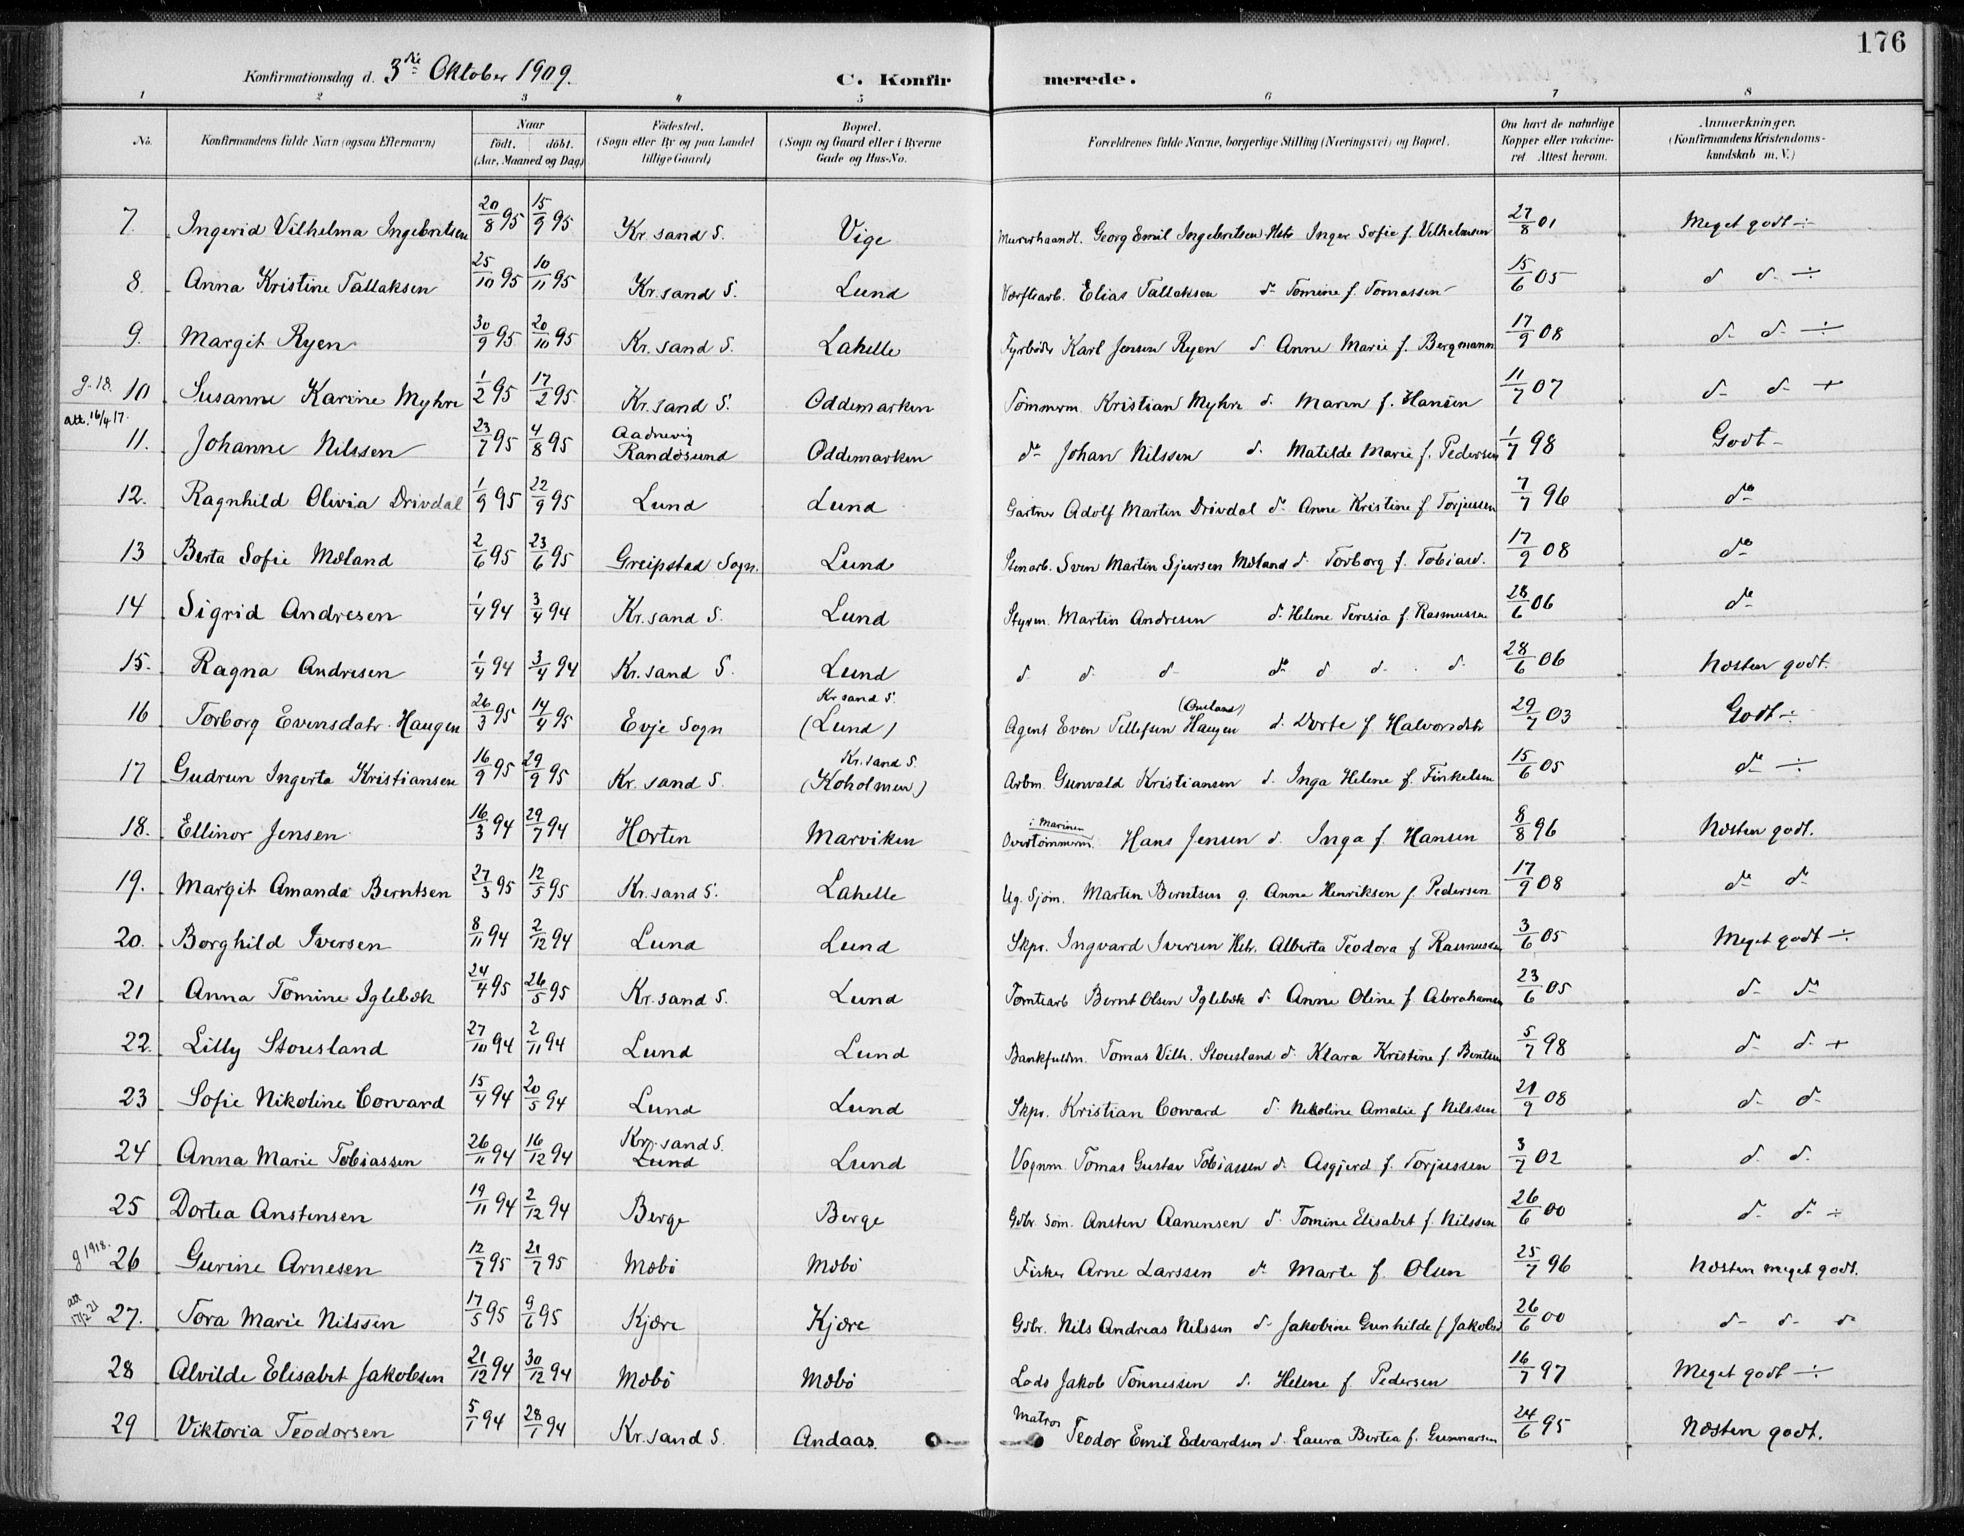 176
Konfirmationsdag d. 3die Oktober 1909. C. Konfirmerede.
1 2 3 4 5 6 7 8
No. Konfirmandens fulde Navn (ogsaa Efternavn) Naar født. døbt. (Aar, Maaned og Dag) Fødested. (Sogn eller By og paa Landet tillige Gaard) Bopæl. (Sogn og Gaard eller i Byerne Gade og Hus-No. Forældrenes fulde Navne, borgerlige Stilling (Næringsvei) og Bopæl. Om havt de naturlige Kopper eller vakcineret. Attest herom. Anmærkninger. (Konfirmandens Kristendomskundskab m. V.)
7. Ingerid Vilhelma Ingebritsen 20/8 95 15/9 95 Kr.sand S. Vige Murerhaandl. Georg Emil Ingebritsen Hstr Inger Sofie f. Vilhelmsen 27/8 01 Meget godt ÷
8. Anna Kristine Tallaksen 25/10 95 10/11 95 Kr.sand S. Lund Værftsarb. Elias Tallaksen do Tomine f. Tomassen 15/6 05 do do ÷
9. Margit Ryen 30/9 95 20/10 95 Kr.sand S. Lahelle Fyrbøder Karl Jensen Ryen do Anne Marie f. Bergmann 17/9 08 do do ÷
g. 18. 10 Susanne Karine Myhre 1/2 95 17/2 95 Kr.sand S. Oddemarken Tømmerm. Kristian Myhre do Maren f. Hansen 11/7 07 do do +
att. 16/4 17. 11. Johanne Nilssen 23/7 95 4/8 95 Aadnevig Randøsund Oddemarken do Johan Nilssen do Matilde Marie f. Pedersen 1/7 98 Godt
12. Ragnhild Olivia Drivdal 1/9 95 22/9 95 Lund Lund Gartner Adolf Martin Drivdal do Anne Kristine f Torjussen 7/7 96 do
13 Berta Sofie Mæland 2/6 95 23/6 95 Greipstad Sogn. Lund Stenarb. Sven Martin Sjursen Mæland do Torborg f. Tobiasd. 17/9 08 do
14 Sigrid Andresen 1/4 94 3/4 94 Kr.sand S. Lund Styrm. Martin Andresen do Helene Teresia f. Rasmussen 28/6 06 do
15. Ragna Andresen 1/4 94 3/4 94 Kr.sand S. Lund do do do do do do do 28/6 06 Næsten godt.
16 Torborg Evensdatr. Haugen 26/3 95 14/4 95 Evje Sogn Kr.sand S. (Lund) Agent Even Tellefsen Haugen do Dorte f Halvorsdtr 29/7 03 Godt ÷
17 Gudrun Ingerta Kristiansen 16/9 95 29/9 95 Kr.sand S. Kr.sand S. (Koholmen) Arbm. Gunvald Kristiansen do Inga Helene f. Finkelsen 15/6 05 do ÷
18. Ellinor Jensen 16/3 94 29/7 94 Horten Marviken i Marinen Overtømmerm. Hans Jensen do Inga f. Hansen 8/8 96 Næsten godt.
19. Margit Amanda Berntsen 27/3 95 12/5 95 Kr.sand S. Lahelle Ug. Sjøm. Martin Berntsen g. Anne Henriksen f. Pedersen 17/9 08 do do
20. Borghild Iversen 8/11 94 2/12 94 Lund Lund Skpr. Ingvard Iversen Hstr. Alberta Teodora f Rasmussen 3/6 05 Meget godt ÷
21 Anna Tomine Iglebæk 24/4 95 26/5 95 Kr.sand S. Lund Tomtearb Bernt Olsen Iglebæk do Anne Oline f. Abrahamsen 23/6 05 do do
22. Lilly Stousland 27/10 94 2/11 94 Lund Lund Bankfuldm. Tomas Vilh. Stousland do Klara Kristine f. Bentsen 5/7 98 do do +
23 Sofie Nikoline Corvard 15/4 94 20/5 94 Lund Lund Skpr. Kristian Corvard do Nikoline Amalie f Nilssen 21/9 08 do do
24 Anna Marie Tobiassen 26/11 94 16/12 94 Kr.sand S. Lund Lund Vognm. Tomas Gustav Tobiassen do Asgjerd f. Torjussen 3/7 02 do do
25 Dortea Anstensen 19/11 94 2/12 94 Berge Berge Gdbr. Søm. Ansten Aanensen do Tomine Elisabet f. Nilssen 26/6 00 do do ÷
g 1918. 26 Gurine Arnesen 12/7 95 21/7 95 Mæbø Mæbø Fisker Arne Larssen do Marte f. Olsen 25/7 96 Næsten meget godt.
att 17/2 21 27. Tora Marie Nilssen 17/5 95 9/6 95 Kjære Kjære Gdbr. Nils Andreas Nilssen do Jakobine Gunhilde f Jakobsd 26/6 00 do do do
28 Alvilde Elisabet Jakobsen 21/12 94 30/12 94 Mæbø Mæbø Lods Jakob Tønnessen do Helene f Pedersen 16/7 97 Meget godt ÷
29 Viktoria Teodorsen 5/1 94 28/1 94 Kr.sand S. Andaas. Matros Teodor Emil Edvardsen do Laura Bertea f. Gunnarsen 24/6 95 Næsten godt.